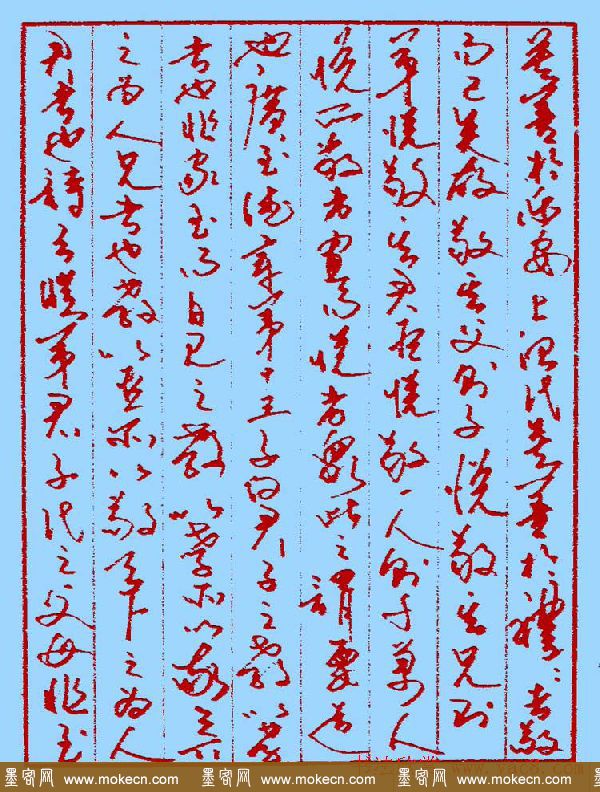 莫善於樂安上治民莫善於禮〻者敬
而已矣故敬其父則子悅敬其兄則
弟悅敬其君臣悅敬一人則千萬人
悅所敬者寡而悅者衆此之謂要道
也廣至德章第十三子曰君子之教以孝
者也非家至而日見之教以孝所以敬天下
之為人兄者也教以臣所以敬天下之為人
君者也詩云愷悌君子民之父母非至
墨客网 www.mokecn.com 墨客网 www.mokecn.com 墨客网 www.mokecn.com